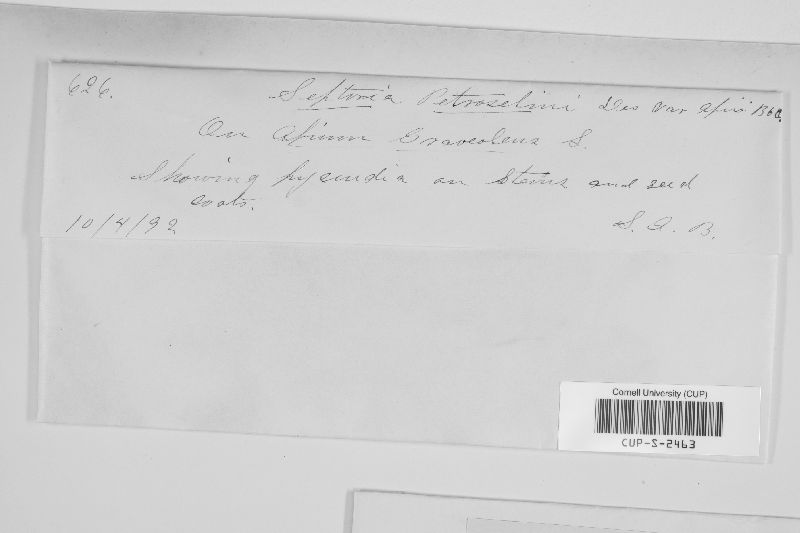 626.
Septoria Petroselini Des var Apii
On Apium Graveolens L.
Showing pycnidia on stems and seed
coats.
10/4/92
S. A. B.
Cornell University (CUP)
CUP-S-2463